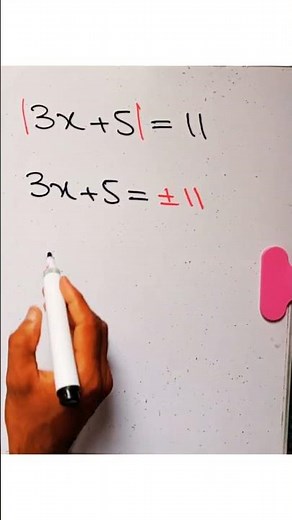 |3x+5|=11
3x+5=±11